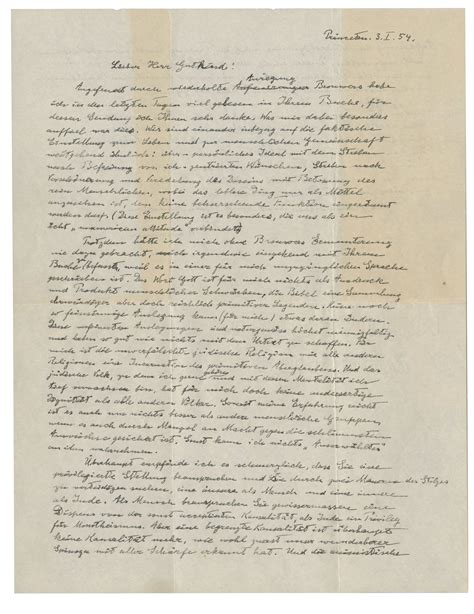 Princeton. 3. I. 54.
Lieber Herr Gutkind!
Anregung
Angefeuert durch wiederholte Brouwers habe
ich in den letzten Tagen viel gelesen in Ihrem Buche, für
dessen Sendung ich Ihnen sehr danke. Was mir dabei besonders
auffiel war dies. Wir sind einander inbezug auf die faktische
Einstellung zum Leben und zur menschlichen Gemeinschaft
weitgehend ähnlich: persönliches Ideal mit dem Streben
nach Befreiung von ich-zentrierten Wünschen, Streben nach
Verschönerung und Veredelung des Daseins mit Betonung des
rein Menschlichen, wobei das leblose Ding nur als Mittel
anzusehen ist, dem keine beherrschende Funktion eingeräumt
werden darf. (Diese Einstellung ist es besonders, die uns als ein
echt "unamerican attitude" verbindet)
Trotzdem hätte ich mich ohne Brouwers Ermunterung
nie dazu gebracht, mich irgendwie eingehend mit Ihrem
Buche zu befassen, weil es in einer für mich unzugänglichen Sprache
geschrieben ist. Das Wort Gott ist für mich nichts als Ausdruck
und Produkt menschlicher Schwächen, die Bibel eine Sammlung
ehrwürdiger aber doch reichlich primitiver Legenden. Keine noch
so feinsinnige Auslegung kann (für mich) etwas daran ändern.
Diese verfeinerten Auslegungen sind naturgemäss höchst mannigfaltig
und haben so gut wie nichts mit dem Urtext zu schaffen. Für
mich ist die unverfälschte jüdische Religion wie alle anderen
Religionen eine Incarnation des primitiven Aberglaubens. Und das
jüdische Volk, zu dem ich gerne gehöre und mit dessen Mentalität ich
tief verwachsen bin, hat für mich doch keine andersartige
Dignität als alle anderen Völker. Soweit meine Erfahrung reicht
ist es auch um nichts besser als andere menschliche Gruppen,
wenn es auch durch Mangel an Macht gegen die schlimmsten
Auswüchse gesichert ist. Sonst kann ich nichts "Auserwähltes"
an ihm wahrnehmen.
Überhaupt empfinde ich es schmerzlich, dass Sie eine
privilegierte Stellung beanspruchen und sie durch zwei Mauern des Stolzes
zu verteidigen suchen, eine äussere als Mensch und eine innere
als Jude. Als Mensch beanspruchen Sie gewissermassen einen
Dispens von der sonst acceptierten Kausalität, als Jude ein Privileg
für Monotheismus. Aber eine begrenzte Kausalität ist überhaupt
keine Kausalität mehr, wie wohl zuerst unser wunderbarer
Spinoza mit aller Schärfe erkannt hat. Und die animistische